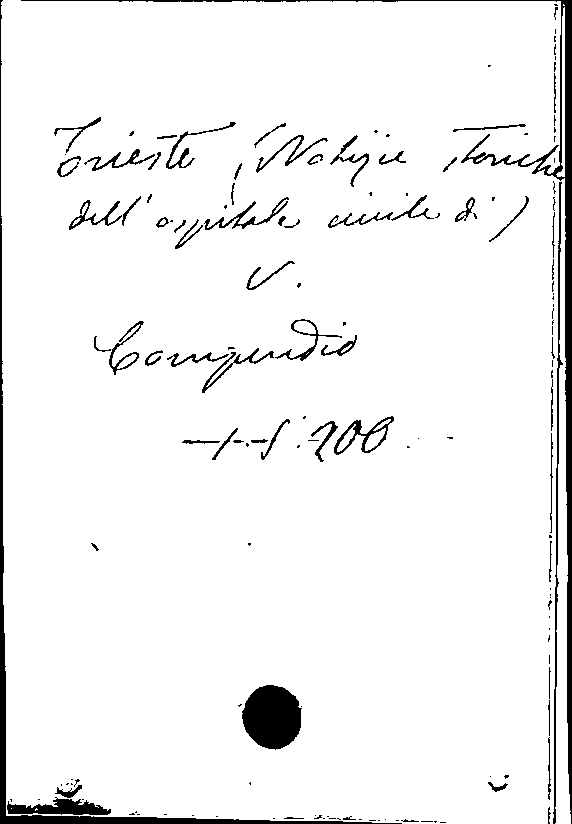 Trieste (Notizie storiche
dell' ospitale civile di)
V.
Compendio
200